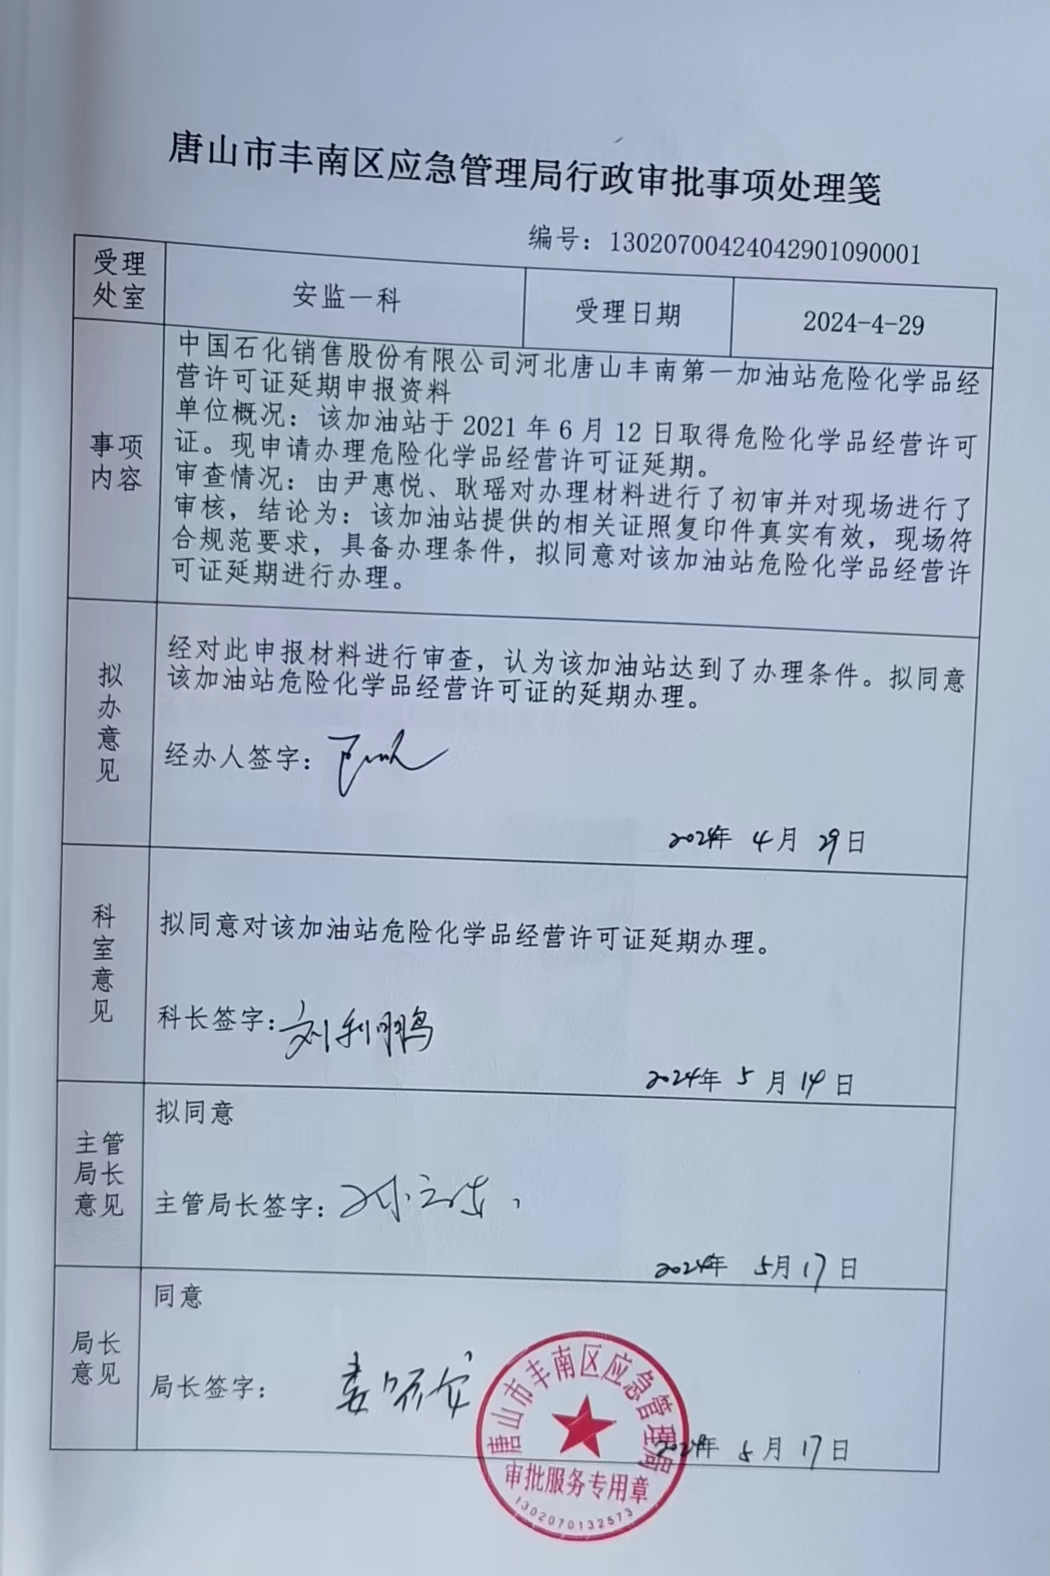 唐山市丰南区应急管理局行政审批事项处理笺
编号：13020700424042901090001
受理
处室
安监一科
受理日期
2024-4-29
事项
内容
中国石化销售股份有限公司河北唐山丰南第一加油站危险化学品经
营许可证延期申报资料
单位概况：该加油站于2021年6月12日取得危险化学品经营许可
证。现申请办理危险化学品经营许可证延期。
审查情况：由尹惠悦、耿瑶对办理材料进行了初审并对现场进行了
审核，结论为：该加油站提供的相关证照复印件真实有效，现场符
合规范要求，具备办理条件，拟同意对该加油站危险化学品经营许
可证延期进行办理。
拟
办
意
见
经对此申报材料进行审查，认为该加油站达到了办理条件。拟同意
该加油站危险化学品经营许可证的延期办理。
经办人签字：
2024年 4月 29日
科
室
意
见
拟同意对该加油站危险化学品经营许可证延期办理。
科长签字：刘利鹏
2024年 5月 14日
主管
局长
意见
拟同意
主管局长签字：
2024年 5月17日
局长
意见
同意
局长签字：
2024年 5月17日
唐山市丰南区应急管理局
审批服务专用章
1302070132573